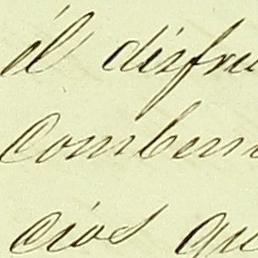 él disfru
combeni
cios qu